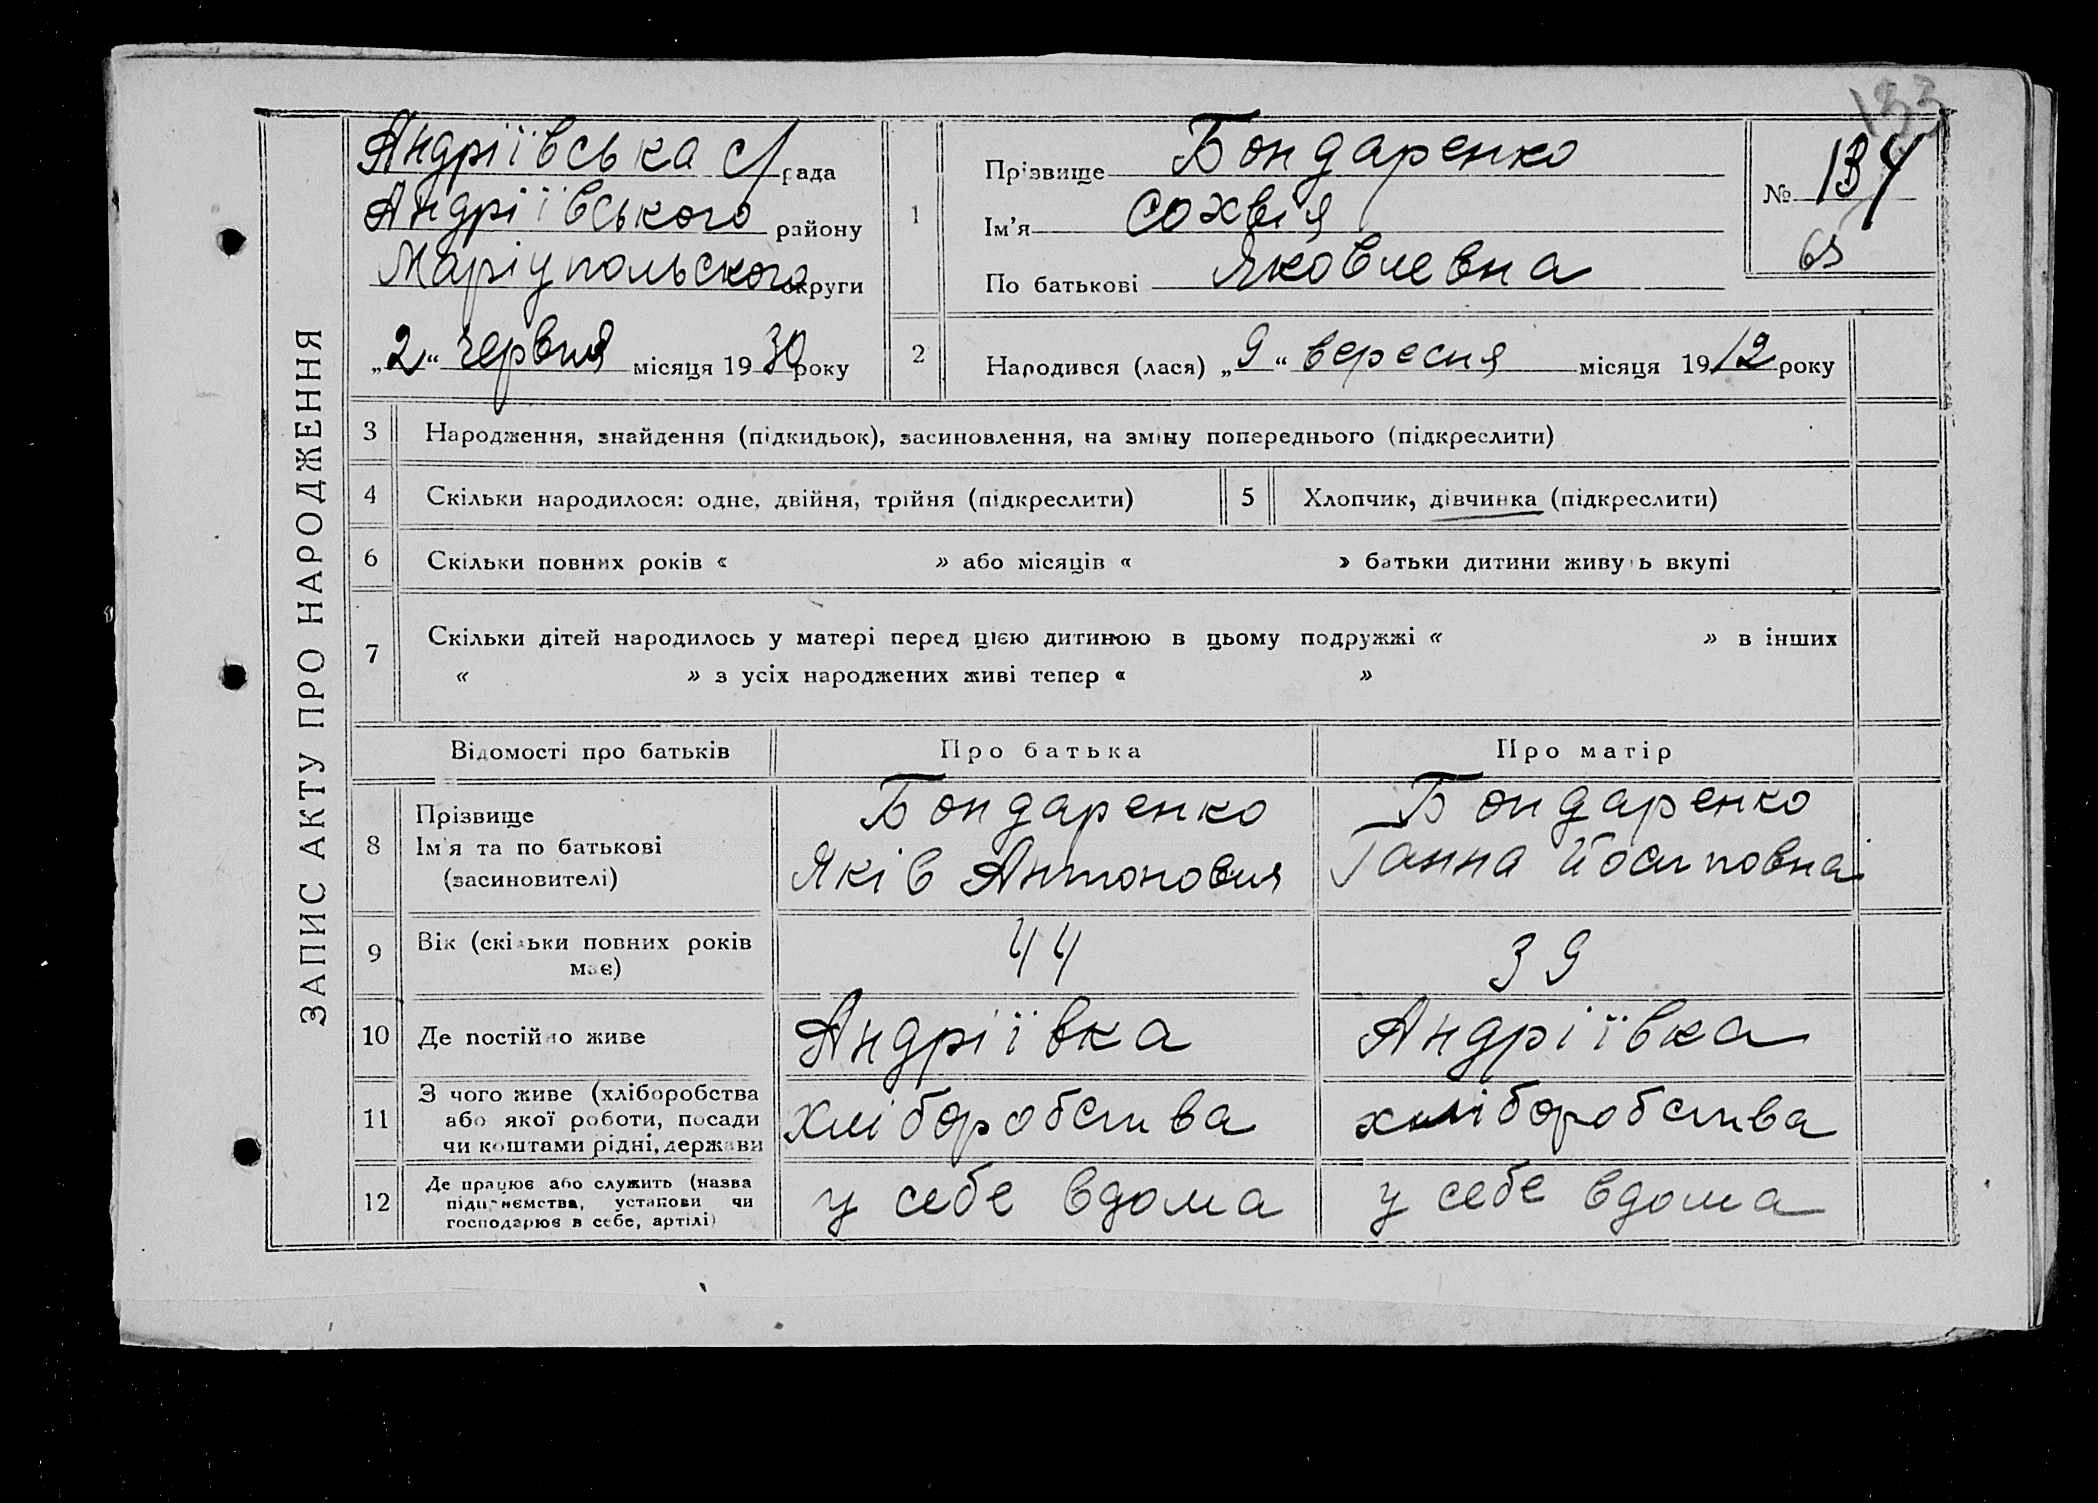 133
ЗАПИС АКТУ ПРО НАРОДЖЕННЯ
Андріївська с/рада
Андріївського району
Маріупольского округи
„2“ червня місяця 1930 року
1
Прізвище Бондаренко
Ім'я Сохвія
По батькові Яковлевна
№ 134
2
Народився (лася) „9“ вересня місяця 1912 року
3 Народження, знайдення (підкидьок), засиновлення, на зміну попереднього (підкреслити)
4 Скільки народилося: одне, двійня, трійня (підкреслити)
5 Хлопчик, дівчинка (підкреслити)
6 Скільки повних років « » або місяців « » батьки дитини живуть вкупі
7 Скільки дітей народилось у матері перед цією дитиною в цьому подружжі « » в інших
« » з усіх народжених живі тепер « »
Відомості про батьків Про батька Про матір
8 Прізвище
Ім'я та по батькові
(засиновителі)
Бондаренко
Яків Антонович
Бондаренко
Ганна Йосиповна
9 Вік (скільки повних років
має)
44
39
10 Де постійно живе Андріївка Андріївка
11 З чого живе (хліборобства
або якої роботи, посади
чи коштами рідні, держави
хліборобства хліборобства
12 Де працює або служить (назва
підприємства, установи чи
господарює в себе, артілі)
у себе вдома у себе вдома